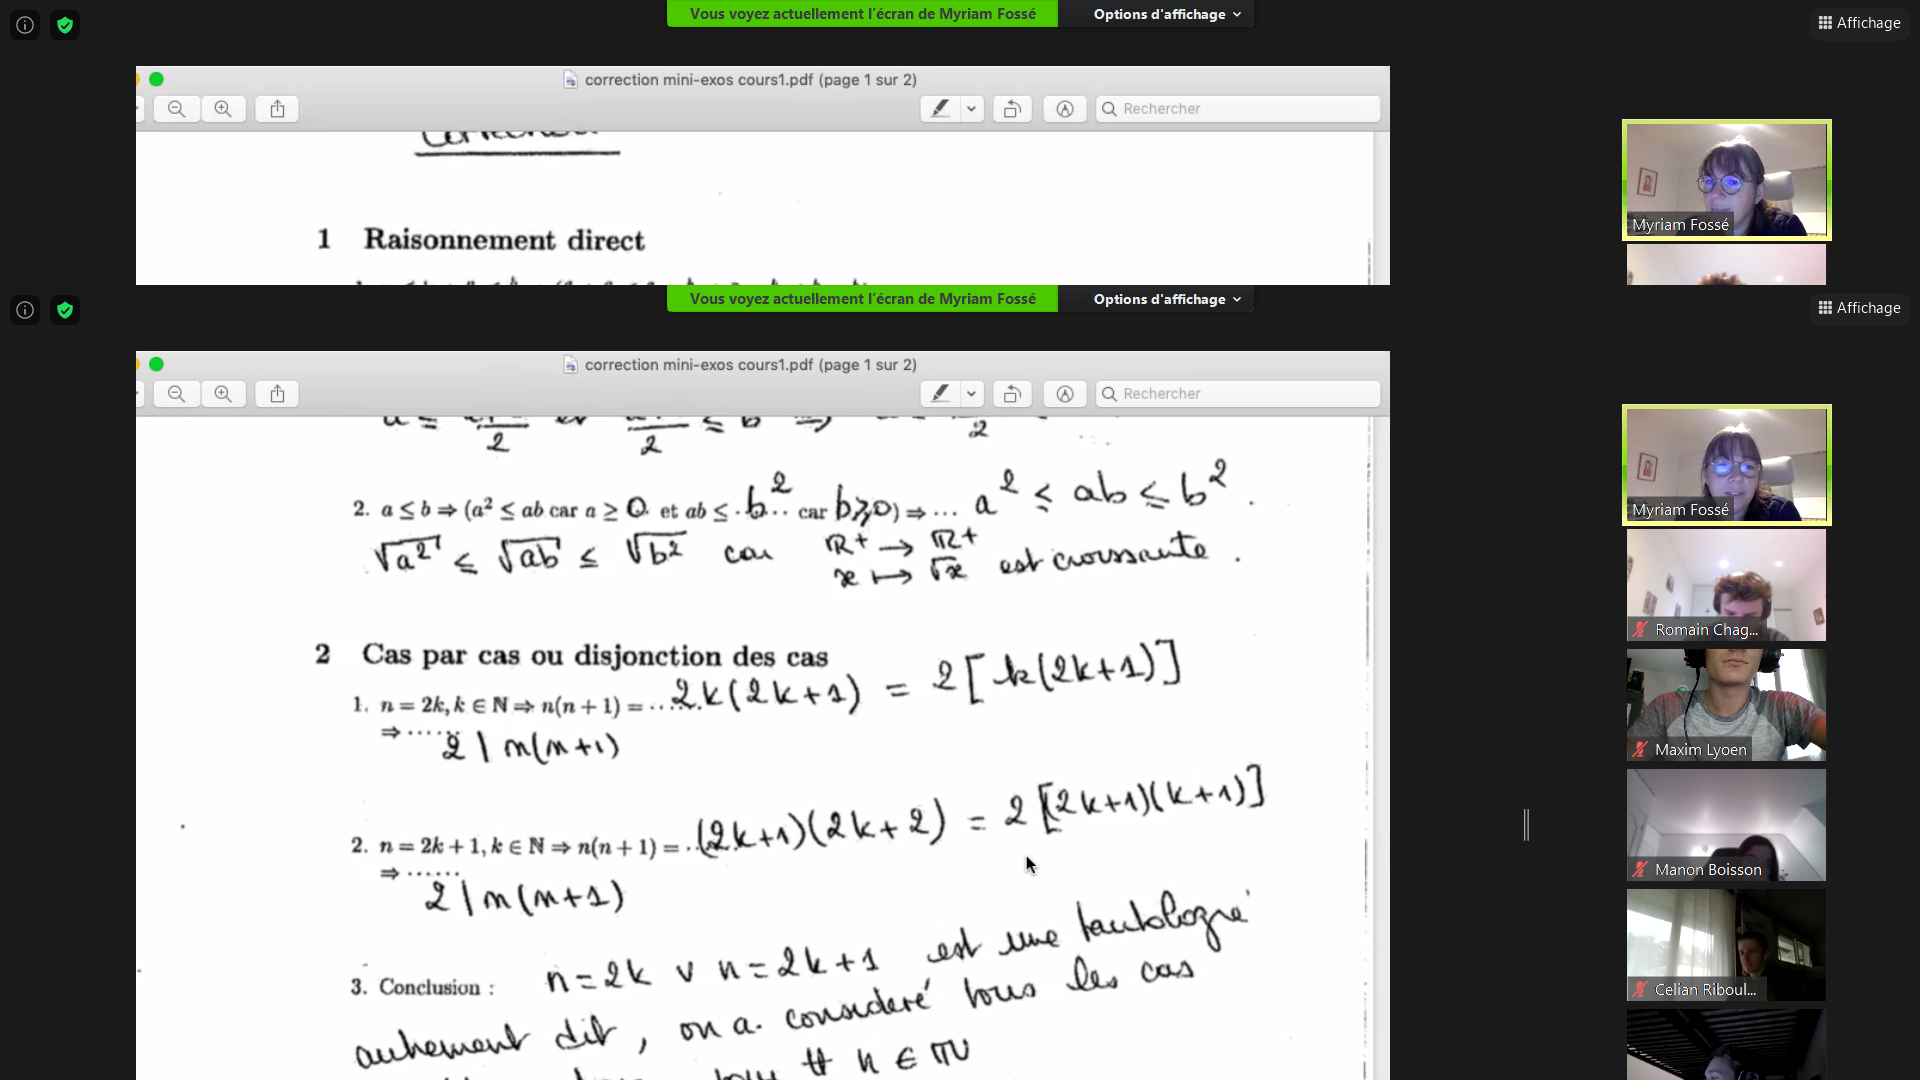 Vous voyez actuellement l'écran de Myriam Fossé
Options d'affichage
Affichage
correction mini-exos cours1.pdf (page 1 sur 2)
Rechercher
1 Raisonnement direct
Myriam Fossé
Vous voyez actuellement l'écran de Myriam Fossé
Options d'affichage
Affichage
correction mini-exos cours1.pdf (page 1 sur 2)
Rechercher
2. a ≤ b ⇒ (a² ≤ ab car a ≥ 0 et ab ≤ b² car b ≥ 0) ⇒ ... a² ≤ ab ≤ b².
√a² ≤ √ab ≤ √b² car ℝ+ → ℝ+
x ↦ √x est croissante.
2 Cas par cas ou disjonction des cas
1. n = 2k, k ∈ ℕ ⇒ n(n + 1) = ...... 2k(2k+1) = 2[k(2k+1)]
⇒ ...... 2 | n(n+1)
2. n = 2k + 1, k ∈ ℕ ⇒ n(n + 1) = ...... (2k+1)(2k+2) = 2[(2k+1)(k+1)]
⇒ ...... 2 | n(n+1)
3. Conclusion : n=2k ∨ n=2k+1 est une tautologie
autrement dit, on a considéré tous les cas
∀ n ∈ ℕ
Myriam Fossé
Romain Chag...
Maxim Lyoen
Manon Boisson
Celian Riboul...